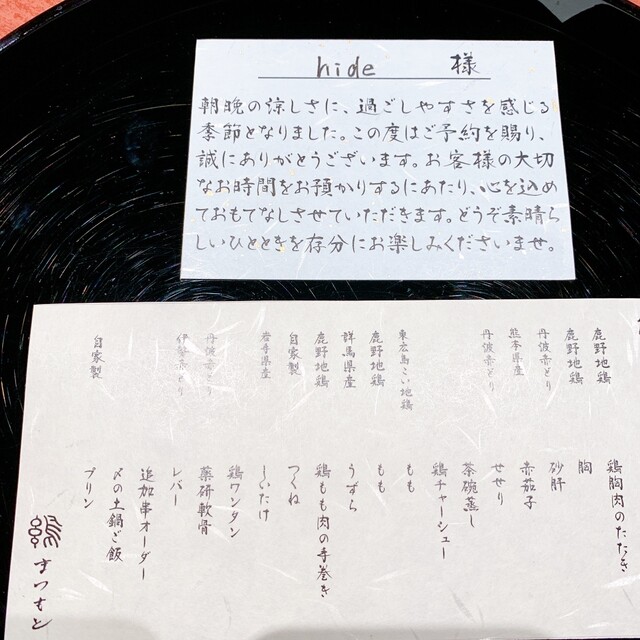 hide 様
朝晩の涼しさに、過ごしやすさを感じる
季節となりました。この度はご予約を賜り、
誠にありがとうございます。お客様の大切
なお時間をお預かりするにあたり、心を込め
ておもてなしさせていただきます。どうぞ素晴ら
しいひとときを存分にお楽しみくださいませ。
鹿野地鶏 鶏胸肉のたたき
鹿野地鶏 胸
丹波赤どり 砂肝
熊本県産 赤茄子
丹波赤どり せせり
茶碗蒸し
鶏チャーシュー
東広島こい地鶏 もも
鹿野地鶏 もも
群馬県産 うずら
鹿野地鶏 鶏もも肉の手巻き
自家製 つくね
岩手県産 しいたけ
鶏ワンタン
丹波赤どり 薬研軟骨
伊勢赤どり レバー
追加串オーダー
〆の土鍋ご飯
自家製 プリン